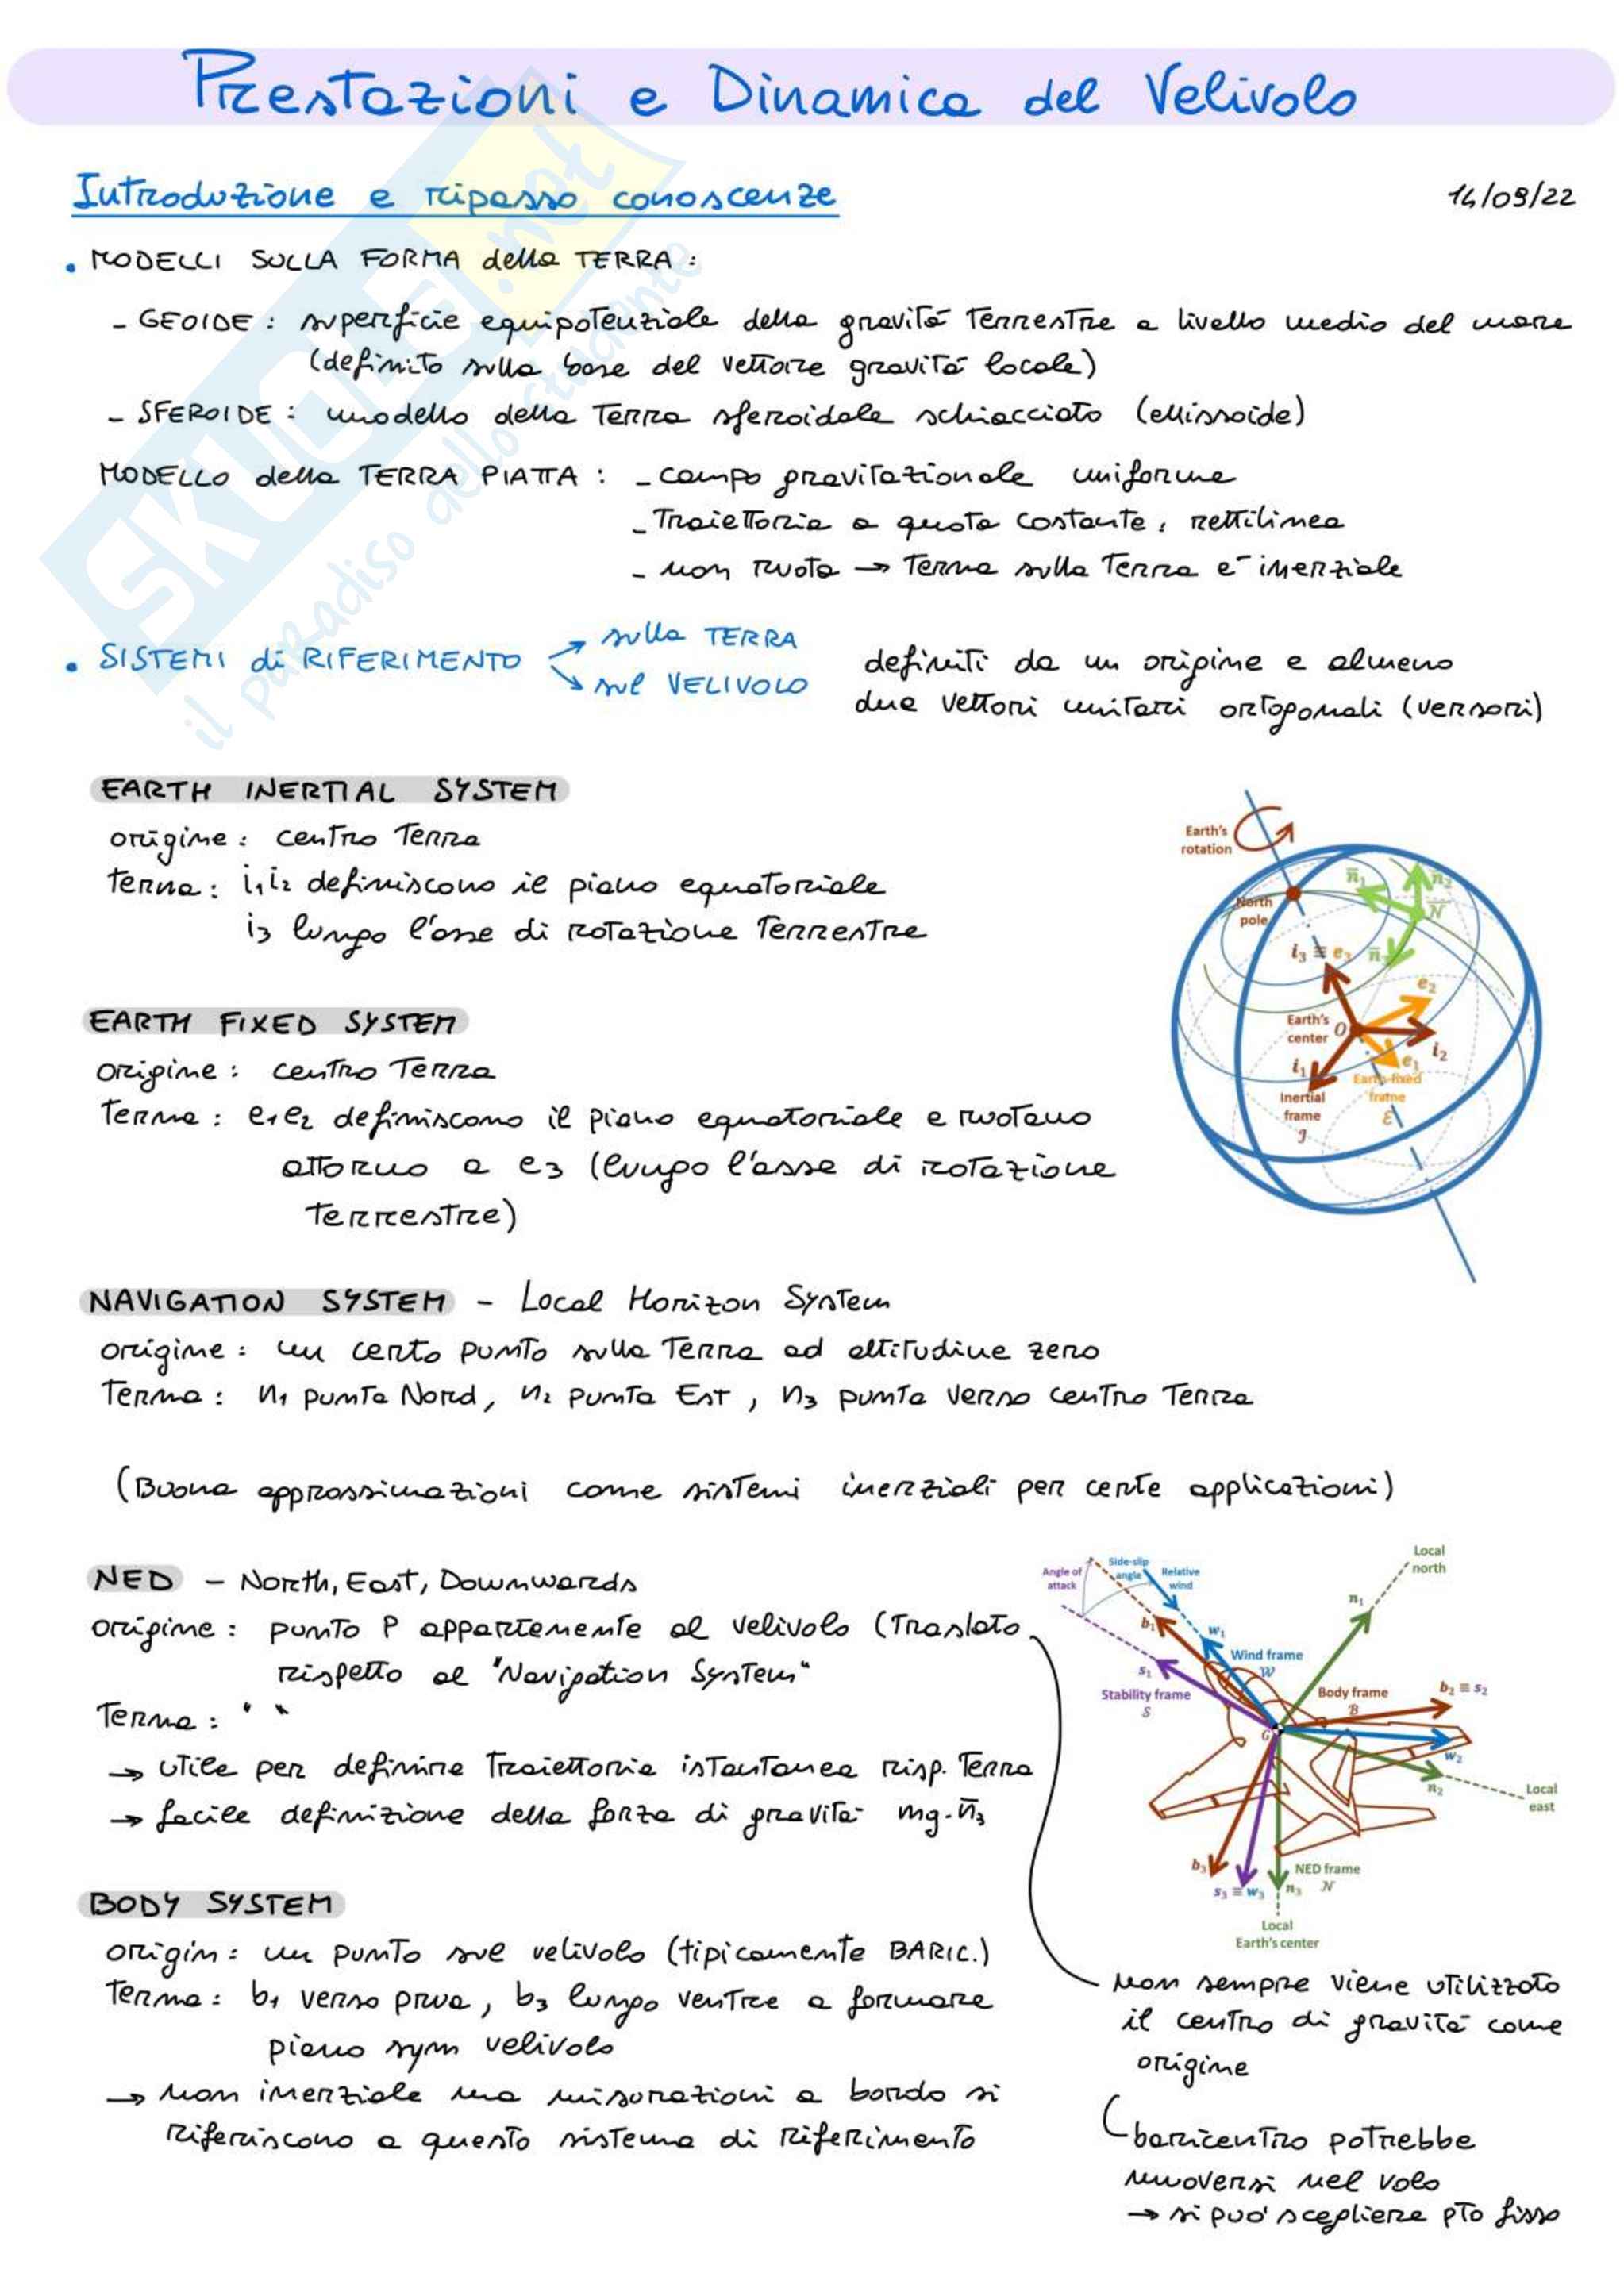 Prestazioni e Dinamica del Velivolo
Introduzione e ripasso conoscenze
14/09/22
• MODELLI SULLA FORMA della TERRA :
- GEOIDE : superficie equipotenziale della gravità terrestre a livello medio del mare
(definito sulla base del vettore gravità locale)
- SFEROIDE : modello della Terra sferoidale schiacciato (ellissoide)
MODELLO della TERRA PIATTA : - campo gravitazionale uniforme
- Traiettoria a quota costante, rettilinea
- non ruota → Terna sulla Terra è inerziale
• SISTEMI di RIFERIMENTO
→ sulla TERRA
→ sul VELIVOLO
definiti da un origine e almeno
due vettori unitari ortogonali (versori)
EARTH INERTIAL SYSTEM
origine : centro Terra
terna : i1 i2 definiscono il piano equatoriale
i3 lungo l'asse di rotazione Terrestre
Earth's
rotation
North
pole
n̄1
n̄2
N
n̄3
i3 ≡ e3
e2
Earth's
center
O
i2
e1
i1
Earth-fixed
frame
ℰ
Inertial
frame
ℐ
EARTH FIXED SYSTEM
origine : centro Terra
Terna : e1 e2 definiscono il piano equatoriale e ruotano
attorno a e3 (lungo l'asse di rotazione
terrestre)
NAVIGATION SYSTEM - Local Horizon System
origine : un certo punto sulla Terra ad altitudine zero
Terna : n1 punta Nord, n2 punta Est, n3 punta verso centro Terra
(Buona approssimazioni come sistemi inerziali per certe applicazioni)
NED - North, East, Downwards
origine : punto P appartenente al velivolo (Traslato
rispetto al "Navigation System"
Terna : " "
→ utile per definire Traiettoria istantanea risp. Terra
→ facile definizione della forza di gravità mg·n̄3
Angle of
attack
Side-slip
angle
Relative
wind
Local
north
n1
b1
w1
Wind frame
𝒲
s1
Stability frame
𝒮
Body frame
ℬ
b2 ≡ s2
G
w2
n2
Local
east
b3
s3 ≡ w3
n3
NED frame
𝒩
Local
Earth's center
BODY SYSTEM
origin : un punto sul velivolo (tipicamente BARIC.)
Terna : b1 verso prua, b3 lungo ventre a formare
piano sym velivolo
→ non inerziale ma misurazioni a bordo si
riferiscono a questo sistema di riferimento
non sempre viene utilizzato
il centro di gravità come
origine
baricentro potrebbe
muoversi nel volo
→ si può scegliere pto fisso
SKUOLA.net
il paradiso dello studente